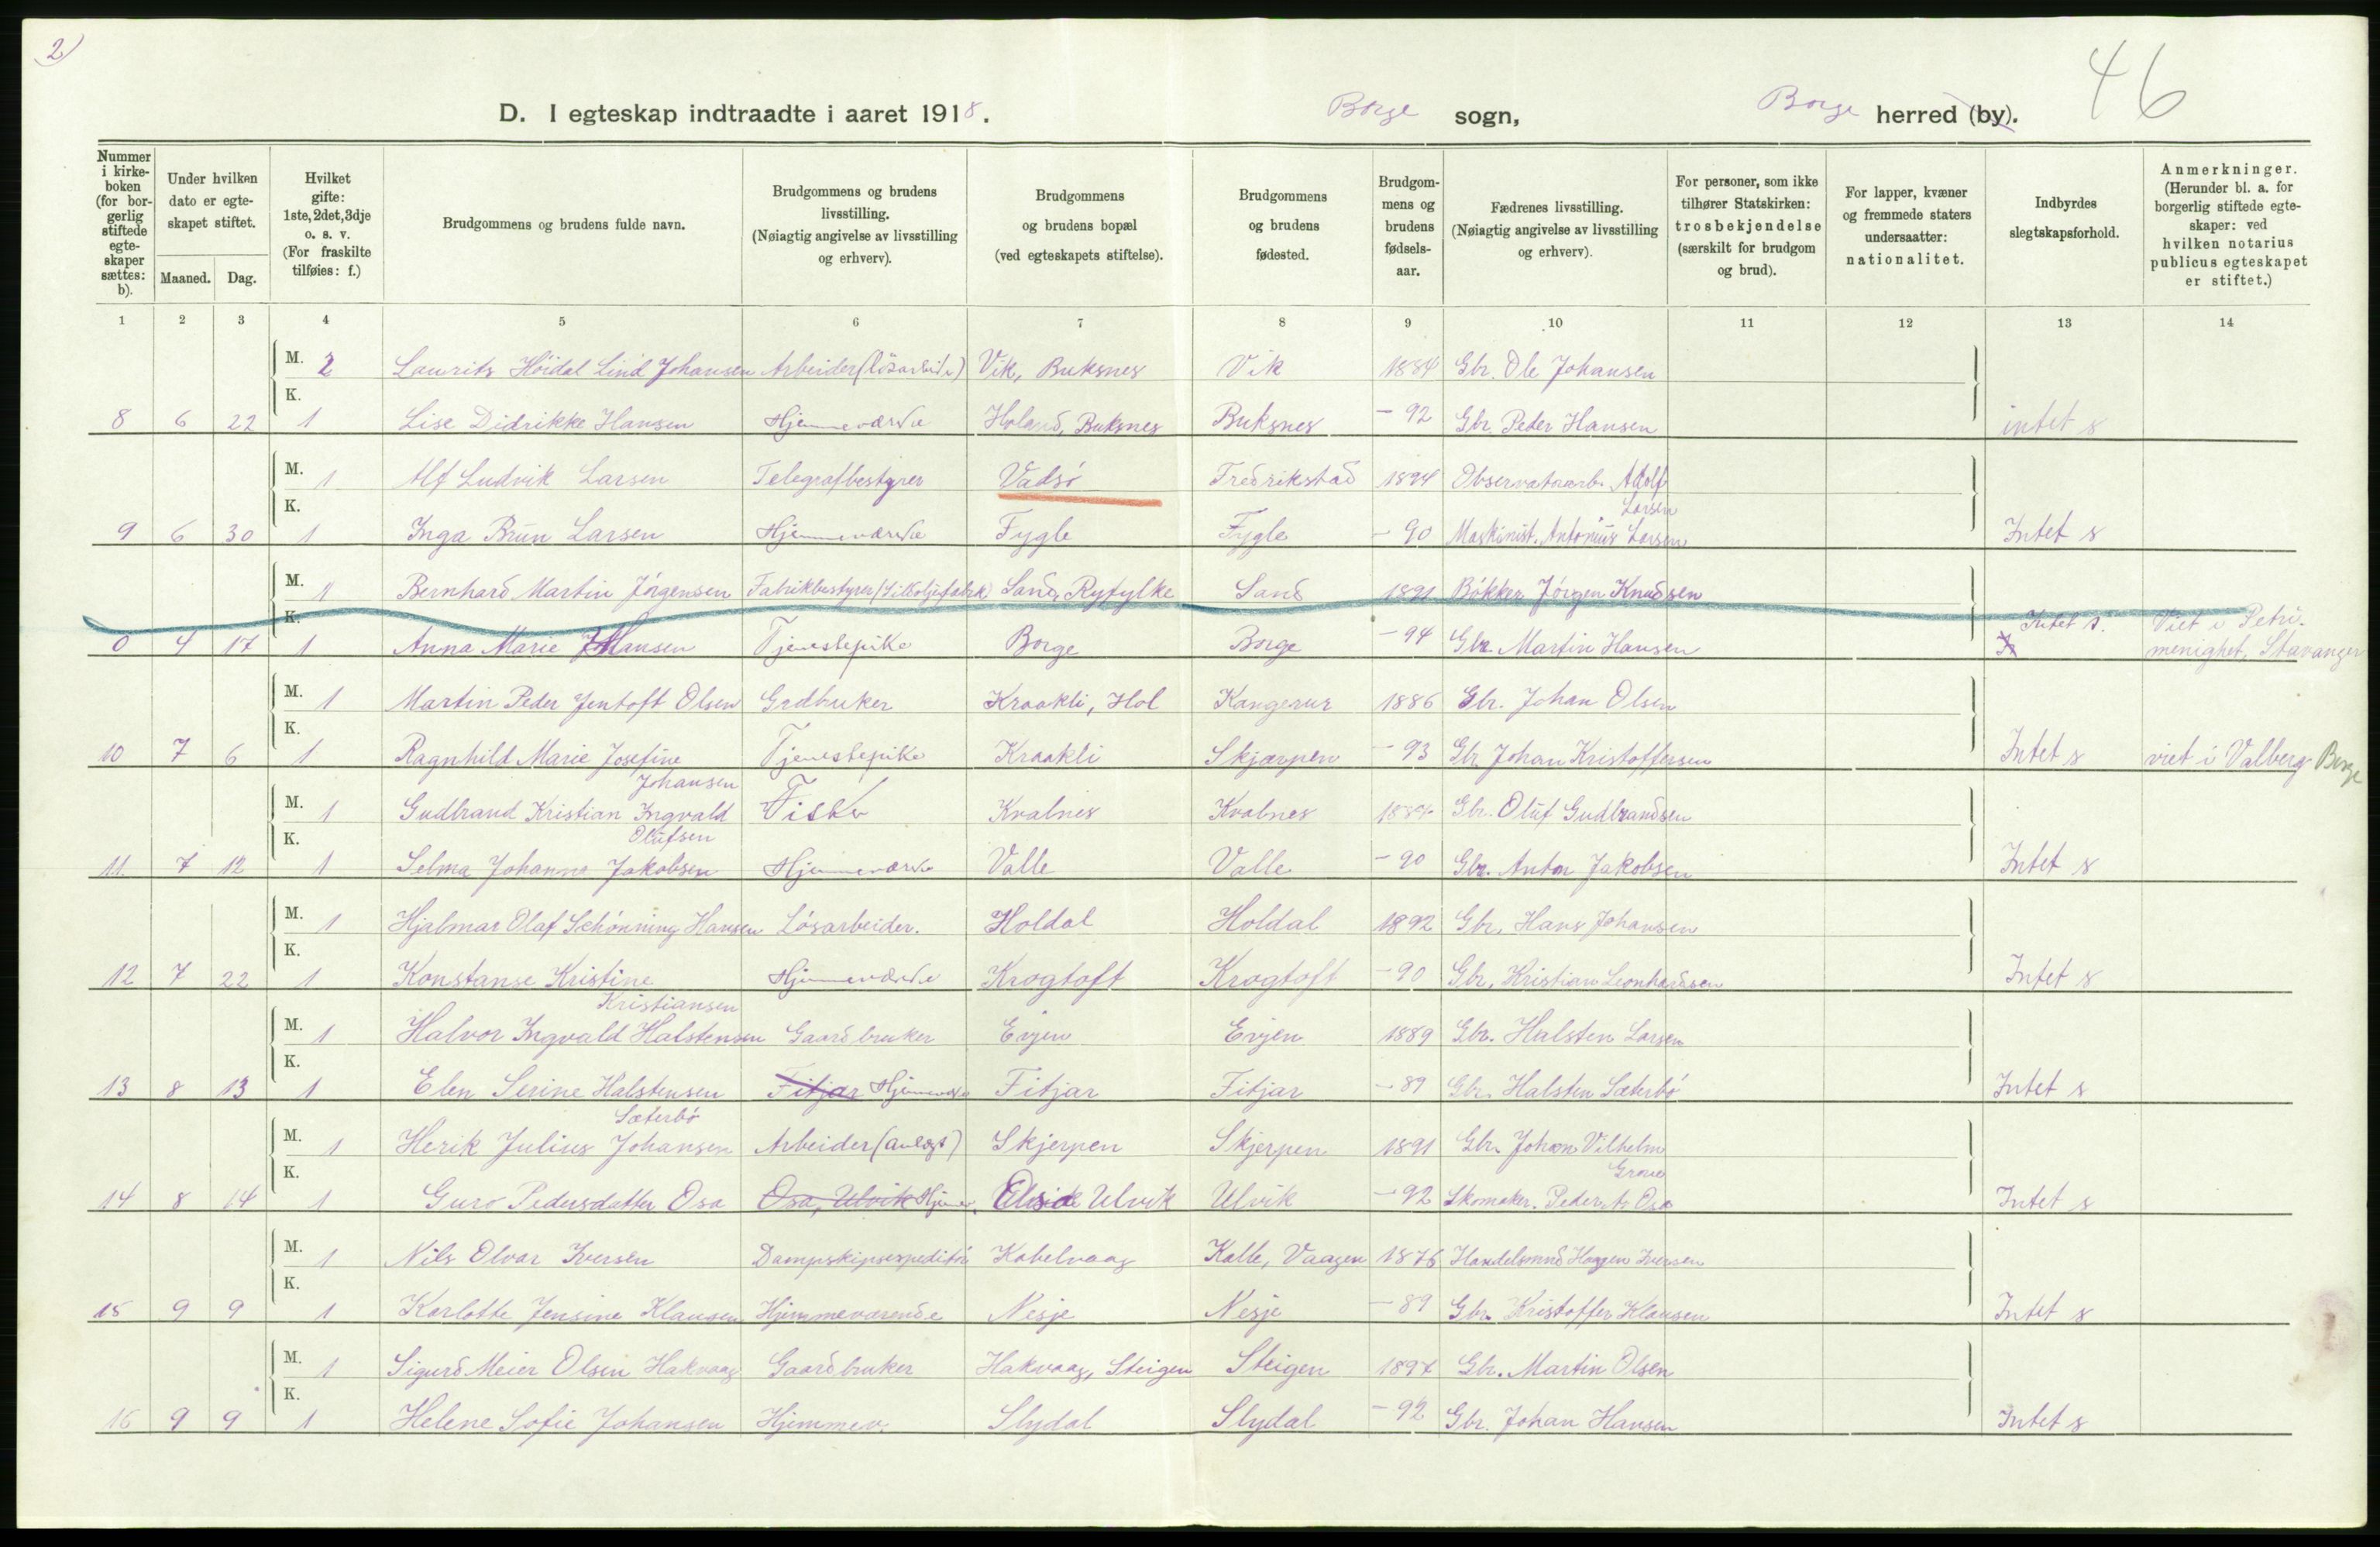 2)
46
D. I egteskap indtraadte i aaret 1918. Borge sogn, Borge herred (by).
Nummer i kirkeboken (for borgerlig stiftede egteskaper sættes: b).
Under hvilken dato er egteskapet stiftet.
Maaned. Dag.
Hvilket gifte: 1ste, 2det, 3dje o. s. v. (For fraskilte tilføies: f.)
Brudgommens og brudens fulde navn.
Brudgommens og brudens livsstilling. (Nøiagtig angivelse av livsstilling og erhverv).
Brudgommens og brudens bopæl (ved egteskapets stiftelse).
Brudgommens og brudens fødested.
Brudgommens og brudens fødselsaar.
Fædrenes livsstilling. (Nøiagtig angivelse av livsstilling og erhverv).
For personer, som ikke tilhører Statskirken: trosbekjendelse (særskilt for brudgom og brud).
For lapper, kvæner og fremmede staters undersaatter: nationalitet.
Indbyrdes slegtskapsforhold.
Anmerkninger. (Herunder bl. a. for borgerlig stiftede egteskaper: ved hvilken notarius publicus egteskapet er stiftet.)
1 2 3 4 5 6 7 8 9 10 11 12 13 14
M. 2 Laurits Höidal Lind Johansen Arbeider (lösarbeide) Vik, Buksnes Vik 1884 Gbr. Ole Johansen
8 6 22 K. 1 Lise Didrikke Hansen Hjemmeværde Holand, Buksnes Buksnes - 92 Gbr. Peder Hansen intet s
M. 1 Alf Ludvik Larsen Telegrafbestyrer Vadsö Fredrikstad 1894 Observatorarb. Adolf Larsen
9 6 30 K. 1 Inga Brun Larsen Hjemmeværde Fygle Fygle - 90 Maskinist. Antonius Larsen Intet s
M. 1 Bernhard Martin Jörgensen Fabrikbestyrer (Sildoljefabrik) Sand, Ryfylke Sand 1891 Bökker Jörgen Knudsen
0 4 17 K. 1 Anna Marie Hansen Tjenestepike Borge Borge - 94 Gbr. Martin Hansen Intet s. Viet i Petri. menighet, Stavanger
M. 1 Martin Peder Jentoft Olsen Grdbruker Kraakli, Hol Kangerur 1886 Gbr. Johan Olsen
10 7 6 K. 1 Ragnhild Marie Josefine Johansen Tjenestepike Kraakli Skjærpen - 93 Gbr Johan Kristoffersen Intet s viet i Valberg Borge
M. 1 Gudbrand Kristian Ingvald Olufsen Fisker Kvalnes Kvalnes Gbr. Oluf Gudbrandsen
11. 7 12 K. 1 Selma Johanna Jakobsen Hjemmeværde Valle Valle - 90 Gbr. Anton Jakobsen Intet s
M. 1 Hjalmar Olaf Schönning Hansen Lösarbeider. Holdal Holdal 1892 Gbr. Hans Johansen
12 7 22 K. 1 Konstanse Kristine Kristiansen Hjemmeværde Krogtoft Krogtoft - 90 Gbr. Kristian Leonhardsen Intet s
M. 1 Halvor Ingvald Halstensen Gaardbruker Evjen Evjen 1889 Gbr. Halsten Larsen
13 8 13 K. 1 Elen Serine Halstensen Sæterbö Fitjar Hjemmev. Fitjar Fitjar - 89 Gbr. Halsten Sæterbö Intet s
M. 1 Herik Julius Johansen Arbeider (anlægs) Skjerpen Skjerpen 1891 Gbr. Johan Vilhelm
14 8 14 K. 1 Guro Pedersdatter Osa Osa, Ulvik Hjemmev. Ulvik Ulvik - 92 Skomaker. Peder Osa Intet s
M. 1 Nils Olvar Iversen Dampskipsexpeditör Kabelvaag Kalle, Vaagen 1876 Handelsmand Hagen Iversen
15 9 9 K. 1 Karlotte Jensine Klausen Hjemmeværende Nesje Nesje - 89 Gbr. Kristoffer Klausen Intet s
M. 1 Sigurd Meier Olsen Hakvaag Gaardbruker Hakvaag, Steigen Steigen 1897 Gbr. Martin Olsen
16 9 9 K. 1 Helene Sofie Johansen Hjemmev. Slydal Slydal - 92 Gbr. Johan Hansen Intet s